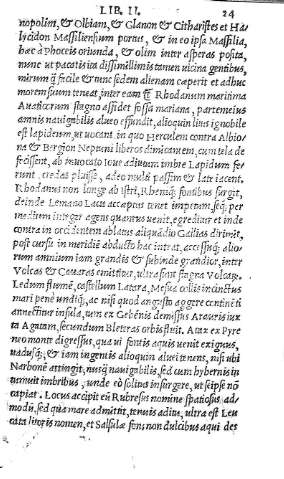 LIB. II. 24
nopolim, & Olbiam, & Glanon & Citharistes et Ha/
lycidon Massiliensium portus, & in eo ipsa Massilia,
hæc à Phoceis oriunda, & olim inter asperas posita,
nunc ut pacatis ita dissimillimis tamen uicina gentibus,
mirum q̃ facile & tunc sedem alienam ceperit et adhuc
morem suum teneat, inter eam &̃ Rhodanum maritima
Auaticorum stagno assidet fossa mariana, partem eius
amnis nauigabili alueo effundit, alioquin lius ignobile
est lapideum, ut uocant in quo Herculem contra Albio
na & Bergion Neptuni liberos dimicantem, cum tela de
fecissent, ab inuocato Ioue adiutum imbre Lapidum fe
runt, credas pluisse, adeo multi passim & late iacent.
Rhodanus non longe ab istri, Rheniq; fontibus surgit,
deinde Lemano Lacu acceptus tenet impetum, seq; per
medium integer agens quantus uenit, egreditur et inde
contra in occidentem ablatus aliquādiu Gallias dirimit,
post cursu in meridiē abducto hac intrat, accessuq; alio
rum amnium iam grandis & subinde grandior, inter
Volcas & Cauaras emittitur, ultra sunt stagna Volcarū,
Ledum flumē, castellum Latara, Mesua collis incinctus
mari penè undiq;, ac nisi quod angusto aggere continēti
annectitur insula, tum ex Gebēnis demissus Arauris iux
ta Agatam, secundum Bleteras orbis fluit. Atax ex Pyre
neo monte digressus, qua ui fontis aquis uenit exiguus,
uadusq;, & iam ingentis alioquin aluei tenens, nisi ubi
Narbonē attingit, nusq̃ nauigabilis, sed cum hybernis in
tumuit imbribus, unde eò solitus insurgere, ut seipse nō
capiat. Locus accipit eū Rubresus nomine spatiosus ad/
modū, sed quà mare admittit, tenuis aditu, ultra est Leu
cata litoris nomen, et Salsulæ fons, non dulcibus aqui des